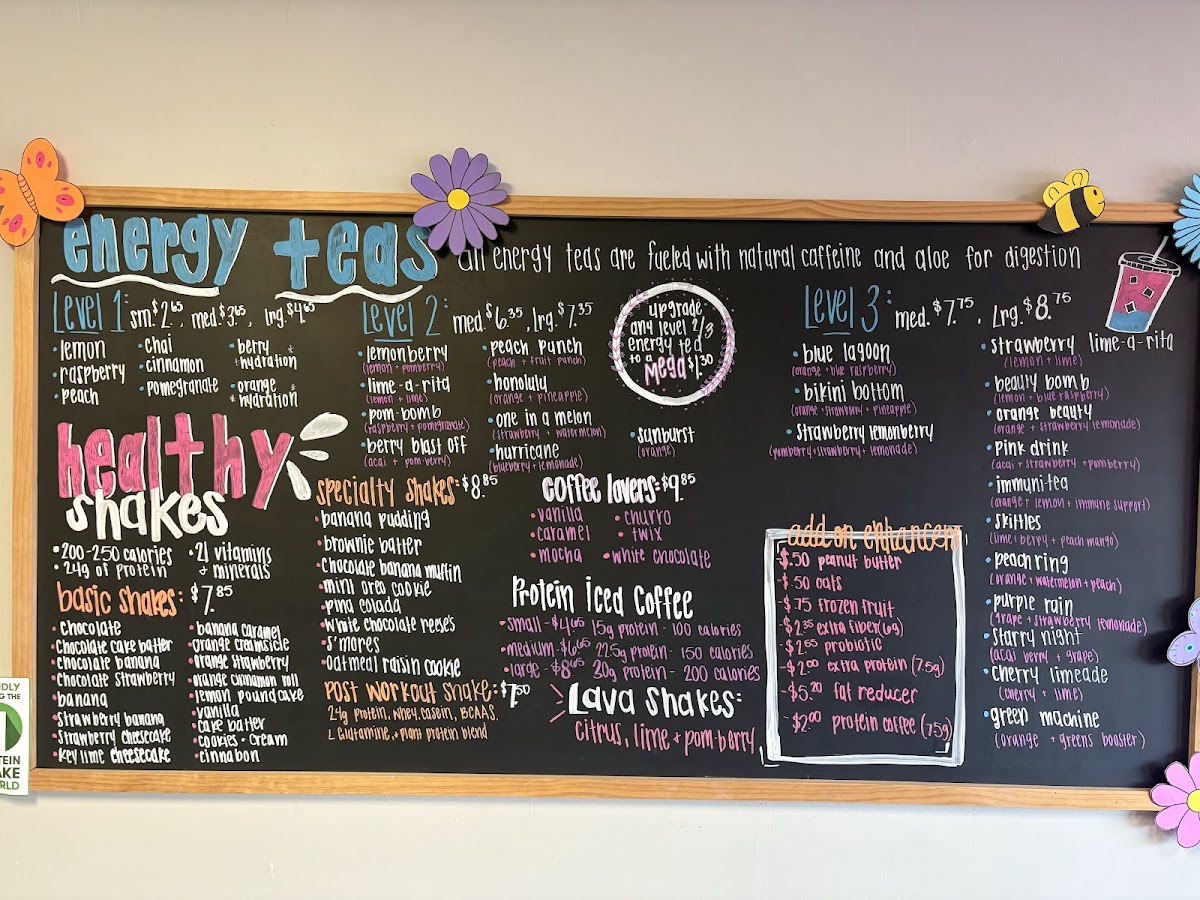 energy teas
all energy teas are fueled with natural caffeine and aloe for digestion
Level 1: sm. $2.65, med. $3.65, lrg. $4.65
• lemon
• raspberry
• peach
• chai
• cinnamon
• pomegranate
• berry
* hydration *
• orange
* hydration *
Level 2: med. $6.35, lrg. $7.35
• lemonberry
(lemon + pomberry)
• lime-a-rita
(lemon + lime)
• pom-bomb
(raspberry + pomegranate)
• berry blast off
(acai + pom-berry)
• peach punch
(peach + fruit punch)
• honolulu
(orange + pineapple)
• one in a melon
(strawberry + watermelon)
• hurricane
(blueberry + lemonade)
upgrade
any level 2/3
energy tea
to a
mega $1.30
• sunburst
(orange)
Level 3: med. $7.75, lrg. $8.75
• blue lagoon
(orange + blue raspberry)
• bikini bottom
(orange + strawberry + pineapple)
• strawberry lemonberry
(pomberry + strawberry + lemonade)
• strawberry lime-a-rita
(lemon + lime)
• beauty bomb
(lemon + blue raspberry)
• orange beauty
(orange + strawberry lemonade)
• pink drink
(acai + strawberry + pomberry)
• immuni-tea
(orange + lemon + immune support)
• skittles
(lime + berry + peach mango)
• peach ring
(orange + watermelon + peach)
• purple rain
(grape + strawberry lemonade)
• starry night
(acai berry + grape)
• cherry limeade
(cherry + lime)
• green machine
(orange + greens booster)
healthy
shakes
• 200-250 calories
• 24g of protein
• 21 vitamins
+ minerals
basic shakes: $7.85
• chocolate
• chocolate cake batter
• chocolate banana
• chocolate strawberry
• banana
• strawberry banana
• strawberry cheesecake
• key lime cheesecake
• banana caramel
• orange creamsicle
• orange strawberry
• orange cinnamon roll
• lemon pound cake
• vanilla
• cake batter
• cookies + cream
• cinnabon
specialty shakes: $8.85
• banana pudding
• brownie batter
• chocolate banana muffin
• mint oreo cookie
• pina colada
• white chocolate reese's
• s'mores
• oatmeal raisin cookie
post workout shake: $7.50
24g protein, whey, casein, BCAAS,
L Glutamine, + plant protein blend
coffee lovers: $9.85
• vanilla
• caramel
• mocha
• churro
• twix
• white chocolate
Protein iced coffee
• small - $4.65 15g protein - 100 calories
• medium - $6.65 22.5g protein - 150 calories
• large - $8.65 30g protein - 200 calories
Lava shakes:
citrus, lime + pom-berry
add on enhancers
- $.50 peanut butter
- $.50 oats
- $.75 frozen fruit
- $2.35 extra fiber (6g)
- $2.65 probiotic
- $2.00 extra protein (7.5g)
- $5.20 fat reducer
- $2.00 protein coffee (7.5g)